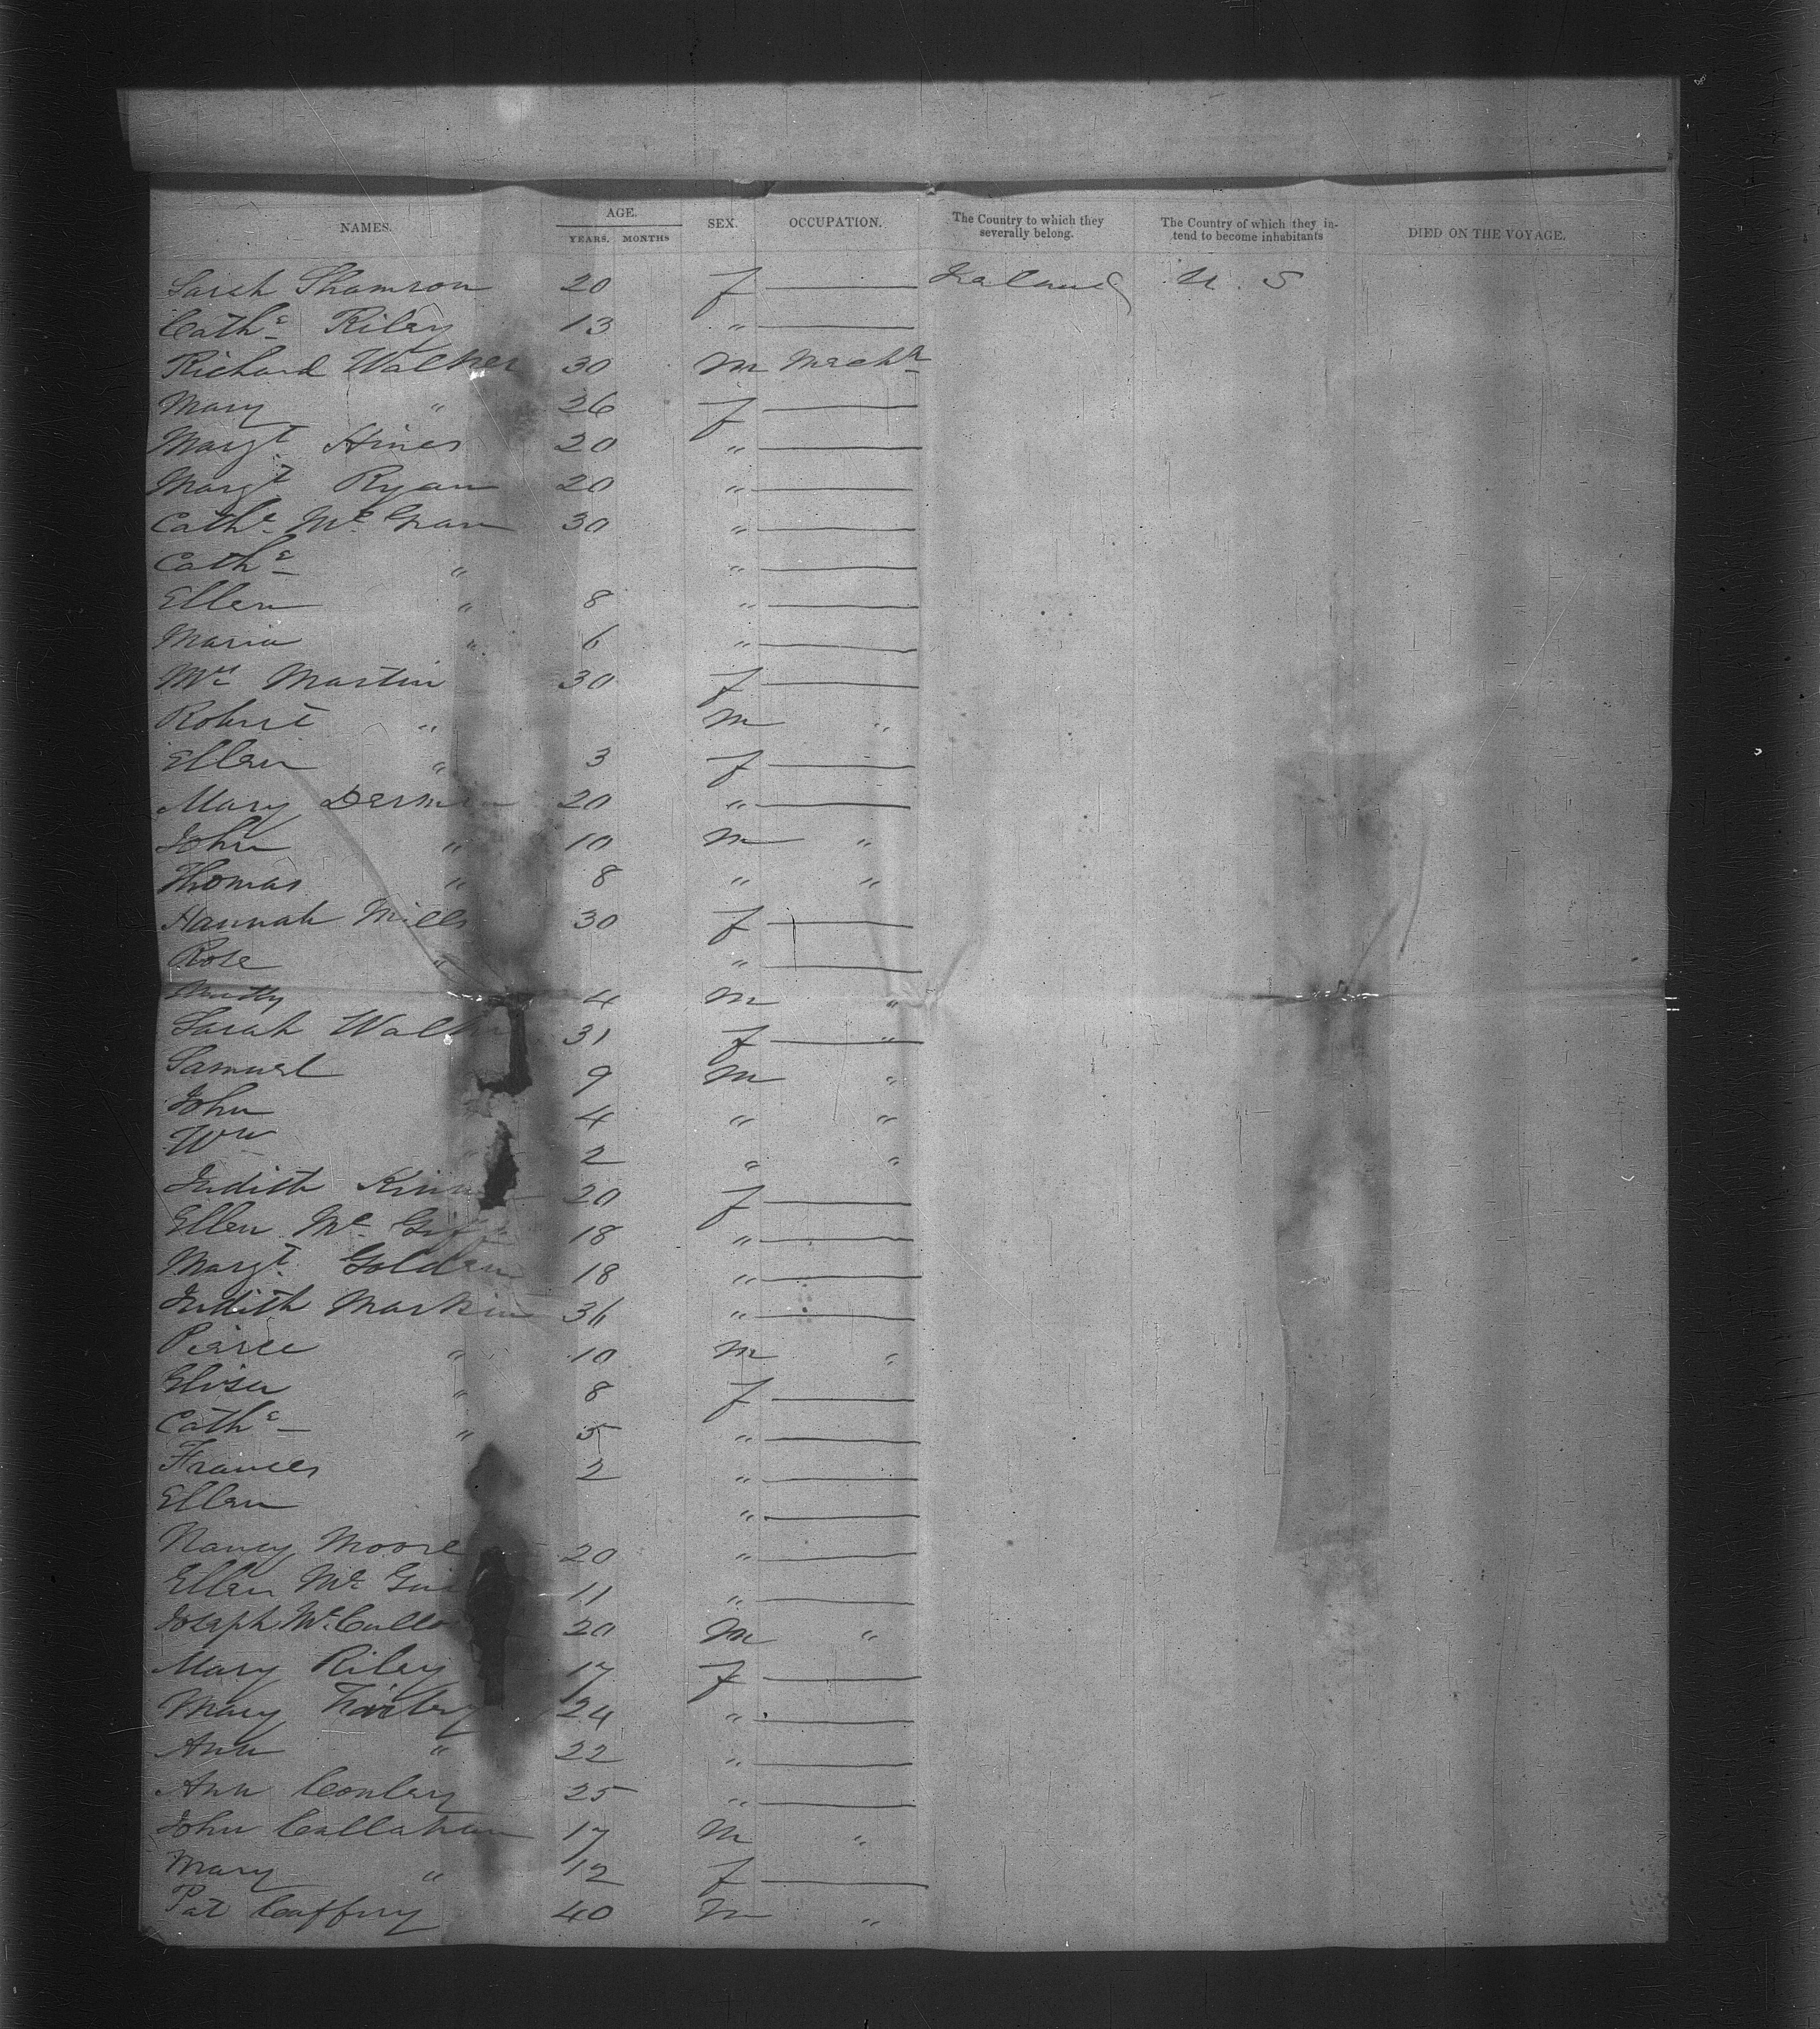 NAMES. AGE. YEARS. MONTHS SEX. OCCUPATION. The Country to which they severally belong. The Country of which they intend to become inhabitants DIED ON THE VOYAGE.
Sarah Shamron 20 f Ireland U. S
Cathe Riley 13 "
Richard Walker 30 m Mechc
Mary " 26 f
Margt Hines 20 "
Margt Ryan 20 "
Cathe Mc 30 "
Cathe " "
Ellen " 8 "
Maria " 6 "
Mrs Martin 30 f
Robert " m "
Ellen " 3 f
Mary 20 "
John " 10 m "
Thomas " 8 " "
Hannah Mills 30 f
Rose " "
4 m "
Sarah 31 f "
Samuel 9 m "
John 4 " "
Wm 2 " "
Judith 20 f
Ellen Mc 18 "
Margt Golden 18 "
Judith Markin 36 "
Pierce " 10 m "
Eliza " 8 f
Cathe " 5 "
Frances 2 "
Ellen "
Nancy Moore 20 "
Ellen Mc 11 "
Joseph McCullo 20 m "
Mary Riley 17 f
Mary 24 "
Ann " 22 "
Ann Conley 25 "
John Callahan 17 m "
Mary " 12 f
Pat Caffrey 40 m "